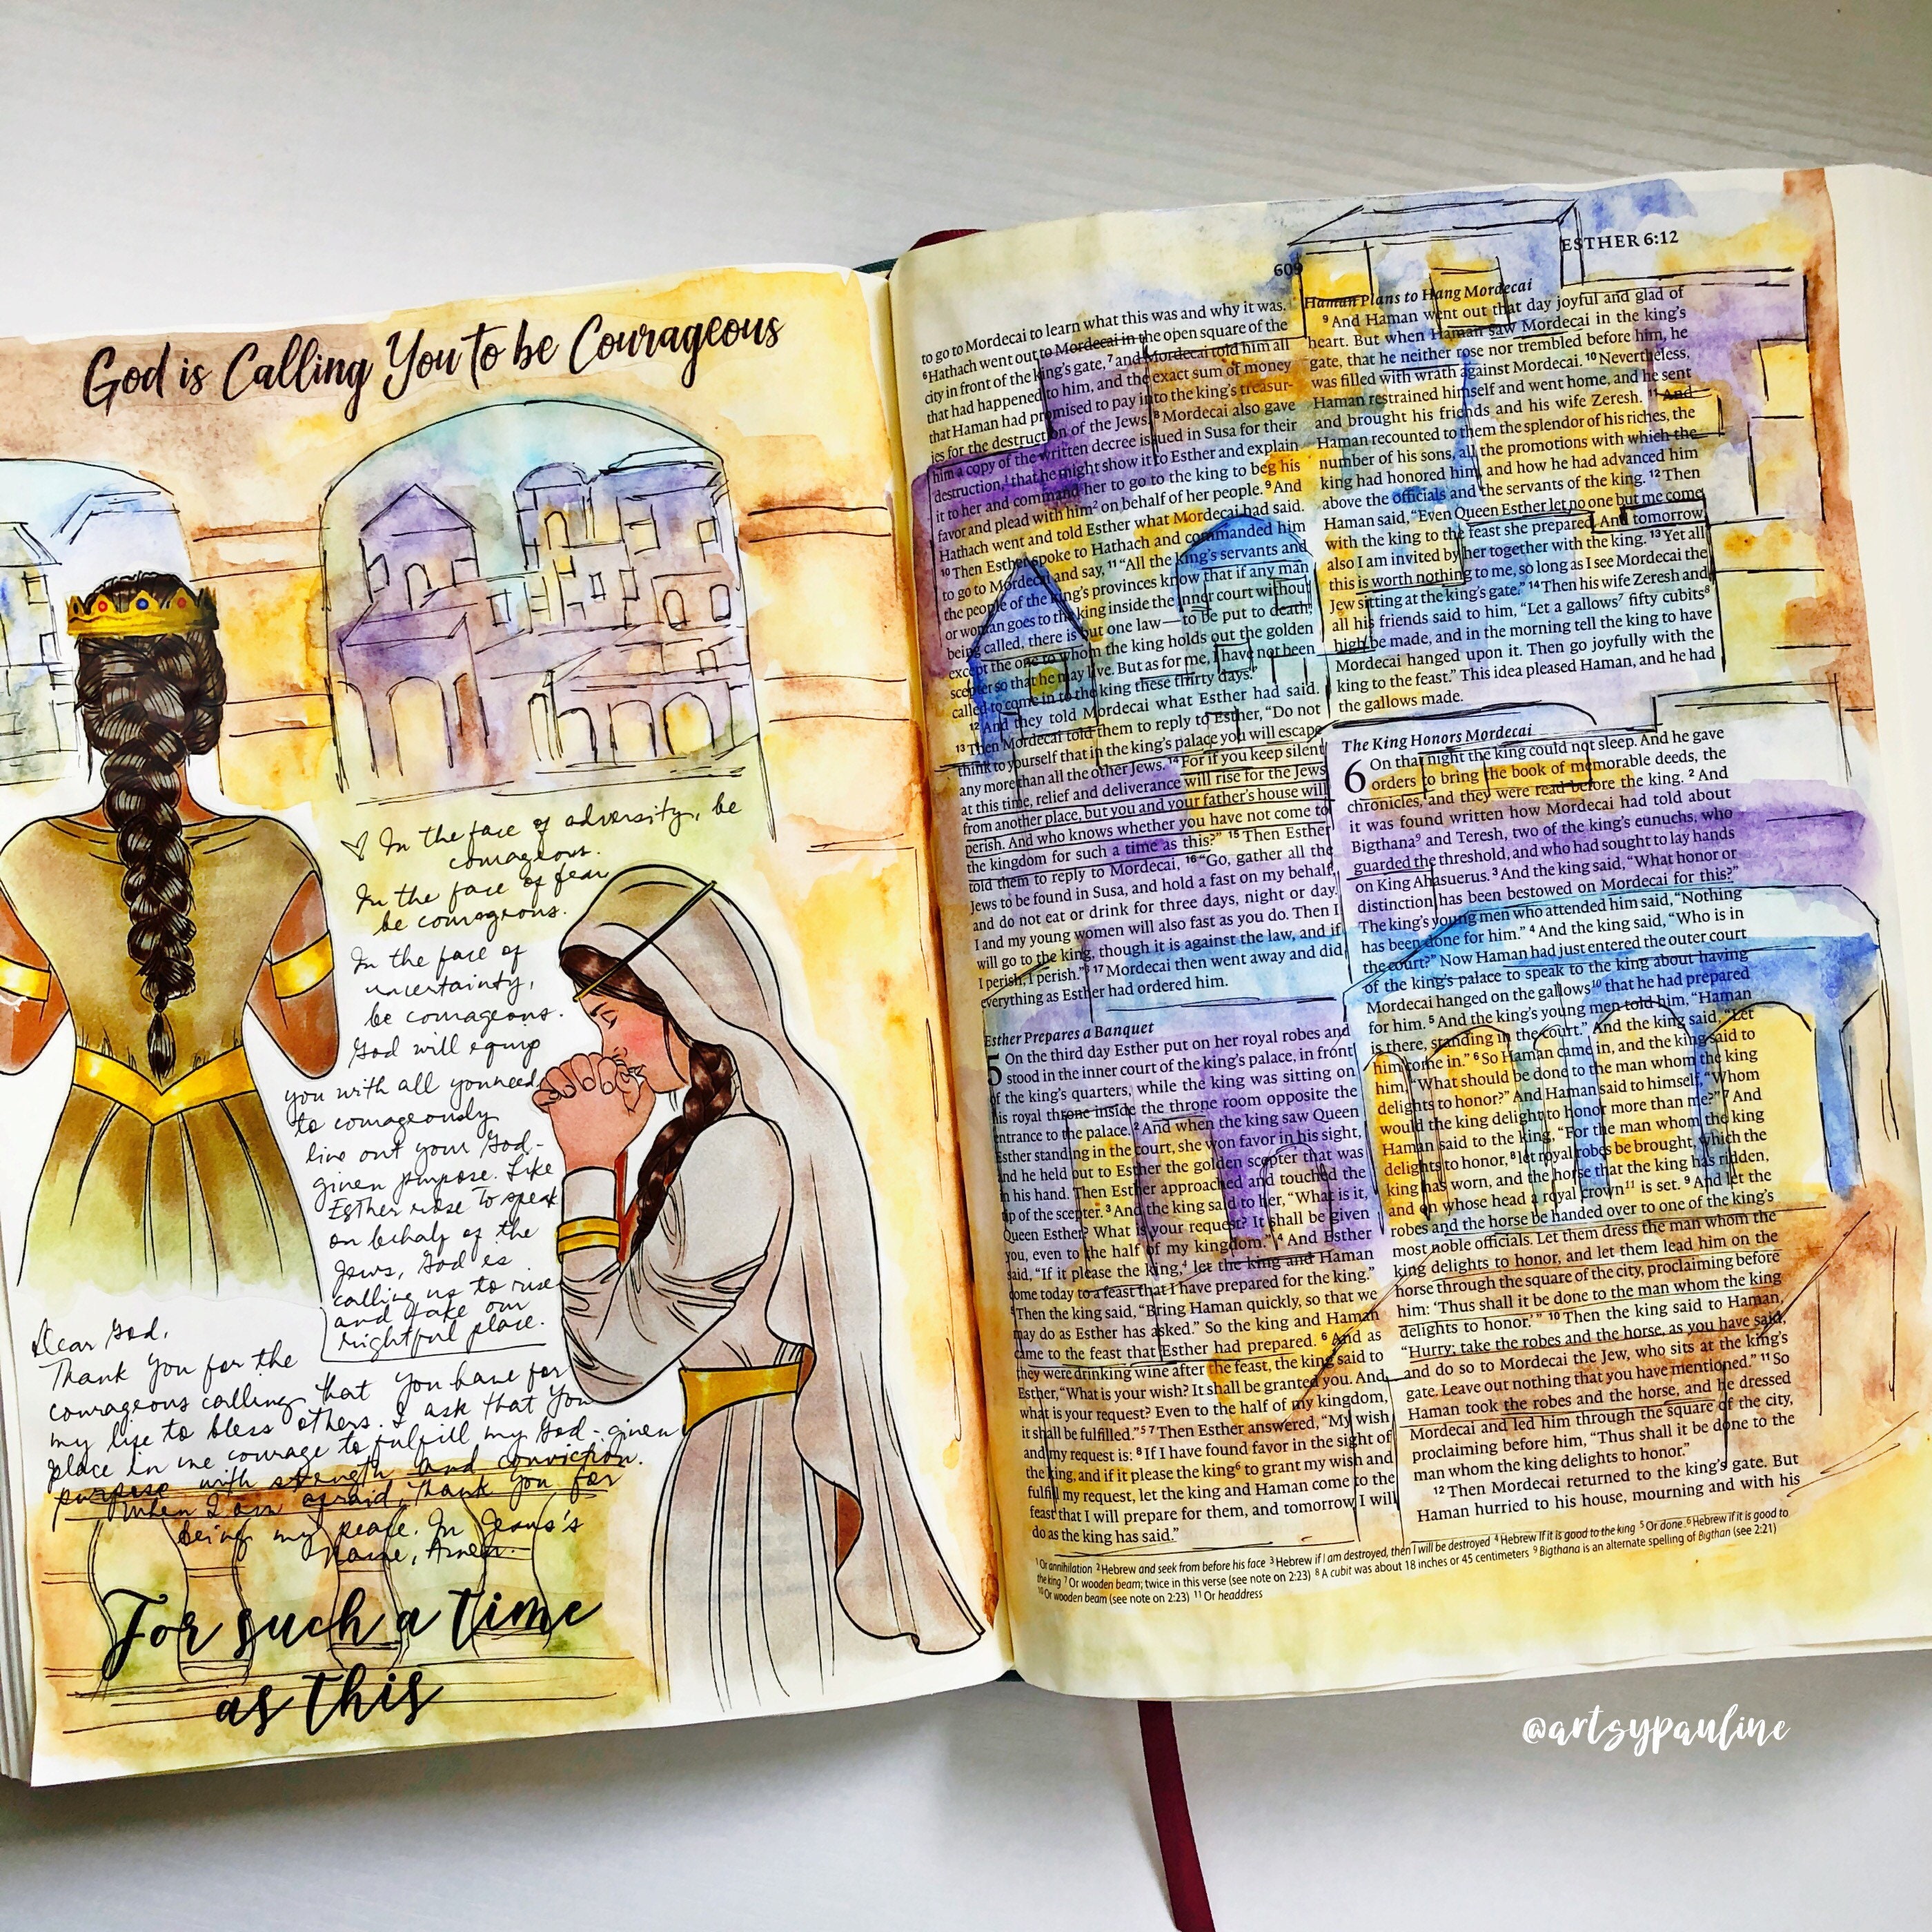 God is Calling You to be Courageous
♡ In the face of adversity, be
courageous.
In the face of fear
be courageous.
In the face of
uncertainty,
be courageous.
God will equip
you with all you need
to courageously
live out your God-
given purpose. Like
Esther rose to speak
on behalf of the
Jews, God is
calling us to rise
and take our
rightful place.
Dear God,
Thank You for the
courageous calling that You have for
my life to bless others. I ask that You
place in me courage to fulfill my God-given
purpose with strength and conviction.
When I am afraid, thank You for
being my peace. In Jesus's
Name, Amen.
For such a time
as this
609
ESTHER 6:12
to go to Mordecai to learn what this was and why it was.
6 Hathach went out to Mordecai in the open square of the
city in front of the king's gate, 7 and Mordecai told him all
that had happened to him, and the exact sum of money
that Haman had promised to pay into the king's treasur-
ies for the destruction of the Jews. 8 Mordecai also gave
him a copy of the written decree issued in Susa for their
destruction,1 that he might show it to Esther and explain
it to her and command her to go to the king to beg his
favor and plead with him2 on behalf of her people. 9 And
Hathach went and told Esther what Mordecai had said.
10 Then Esther spoke to Hathach and commanded him
to go to Mordecai and say, 11 "All the king's servants and
the people of the king's provinces know that if any man
or woman goes to the king inside the inner court without
being called, there is but one law—to be put to death,
except the one to whom the king holds out the golden
scepter so that he may live. But as for me, I have not been
called to come in to the king these thirty days."
12 And they told Mordecai what Esther had said.
13 Then Mordecai told them to reply to Esther, "Do not
think to yourself that in the king's palace you will escape
any more than all the other Jews. 14 For if you keep silent
at this time, relief and deliverance will rise for the Jews
from another place, but you and your father's house will
perish. And who knows whether you have not come to
the kingdom for such a time as this?" 15 Then Esther
told them to reply to Mordecai, 16 "Go, gather all the
Jews to be found in Susa, and hold a fast on my behalf,
and do not eat or drink for three days, night or day.
I and my young women will also fast as you do. Then I
will go to the king, though it is against the law, and if
I perish, I perish."3 17 Mordecai then went away and did
everything as Esther had ordered him.
Esther Prepares a Banquet
5 On the third day Esther put on her royal robes and
stood in the inner court of the king's palace, in front
of the king's quarters, while the king was sitting on
his royal throne inside the throne room opposite the
entrance to the palace. 2 And when the king saw Queen
Esther standing in the court, she won favor in his sight,
and he held out to Esther the golden scepter that was
in his hand. Then Esther approached and touched the
tip of the scepter. 3 And the king said to her, "What is it,
Queen Esther? What is your request? It shall be given
you, even to the half of my kingdom." 4 And Esther
said, "If it please the king,4 let the king and Haman
come today to a feast that I have prepared for the king."
5 Then the king said, "Bring Haman quickly, so that we
may do as Esther has asked." So the king and Haman
came to the feast that Esther had prepared. 6 And as
they were drinking wine after the feast, the king said to
Esther, "What is your wish? It shall be granted you. And
what is your request? Even to the half of my kingdom,
it shall be fulfilled."5 7 Then Esther answered, "My wish
and my request is: 8 If I have found favor in the sight of
the king, and if it please the king6 to grant my wish and
fulfill my request, let the king and Haman come to the
feast that I will prepare for them, and tomorrow I will
do as the king has said."
Haman Plans to Hang Mordecai
9 And Haman went out that day joyful and glad of
heart. But when Haman saw Mordecai in the king's
gate, that he neither rose nor trembled before him, he
was filled with wrath against Mordecai. 10 Nevertheless,
Haman restrained himself and went home, and he sent
and brought his friends and his wife Zeresh. 11 And
Haman recounted to them the splendor of his riches, the
number of his sons, all the promotions with which the
king had honored him, and how he had advanced him
above the officials and the servants of the king. 12 Then
Haman said, "Even Queen Esther let no one but me come
with the king to the feast she prepared. And tomorrow
also I am invited by her together with the king. 13 Yet all
this is worth nothing to me, so long as I see Mordecai the
Jew sitting at the king's gate." 14 Then his wife Zeresh and
all his friends said to him, "Let a gallows7 fifty cubits8
high be made, and in the morning tell the king to have
Mordecai hanged upon it. Then go joyfully with the
king to the feast." This idea pleased Haman, and he had
the gallows made.
The King Honors Mordecai
6 On that night the king could not sleep. And he gave
orders to bring the book of memorable deeds, the
chronicles, and they were read before the king. 2 And
it was found written how Mordecai had told about
Bigthana9 and Teresh, two of the king's eunuchs, who
guarded the threshold, and who had sought to lay hands
on King Ahasuerus. 3 And the king said, "What honor or
distinction has been bestowed on Mordecai for this?"
The king's young men who attended him said, "Nothing
has been done for him." 4 And the king said, "Who is in
the court?" Now Haman had just entered the outer court
of the king's palace to speak to the king about having
Mordecai hanged on the gallows10 that he had prepared
for him. 5 And the king's young men told him, "Haman
is there, standing in the court." And the king said, "Let
him come in." 6 So Haman came in, and the king said to
him, "What should be done to the man whom the king
delights to honor?" And Haman said to himself, "Whom
would the king delight to honor more than me?" 7 And
Haman said to the king, "For the man whom the king
delights to honor, 8 let royal robes be brought, which the
king has worn, and the horse that the king has ridden,
and on whose head a royal crown11 is set. 9 And let the
robes and the horse be handed over to one of the king's
most noble officials. Let them dress the man whom the
king delights to honor, and let them lead him on the
horse through the square of the city, proclaiming before
him: 'Thus shall it be done to the man whom the king
delights to honor.'" 10 Then the king said to Haman,
"Hurry; take the robes and the horse, as you have said,
and do so to Mordecai the Jew, who sits at the king's
gate. Leave out nothing that you have mentioned." 11 So
Haman took the robes and the horse, and he dressed
Mordecai and led him through the square of the city,
proclaiming before him, "Thus shall it be done to the
man whom the king delights to honor."
12 Then Mordecai returned to the king's gate. But
Haman hurried to his house, mourning and with his
1 Or annihilation 2 Hebrew and seek from before his face 3 Hebrew if I am destroyed, then I will be destroyed 4 Hebrew If it is good to the king 5 Or done 6 Hebrew if it is good to
the king 7 Or wooden beam; twice in this verse (see note on 2:23) 8 A cubit was about 18 inches or 45 centimeters 9 Bigthana is an alternate spelling of Bigthan (see 2:21)
10 Or wooden beam (see note on 2:23) 11 Or headdress
@artsypauline